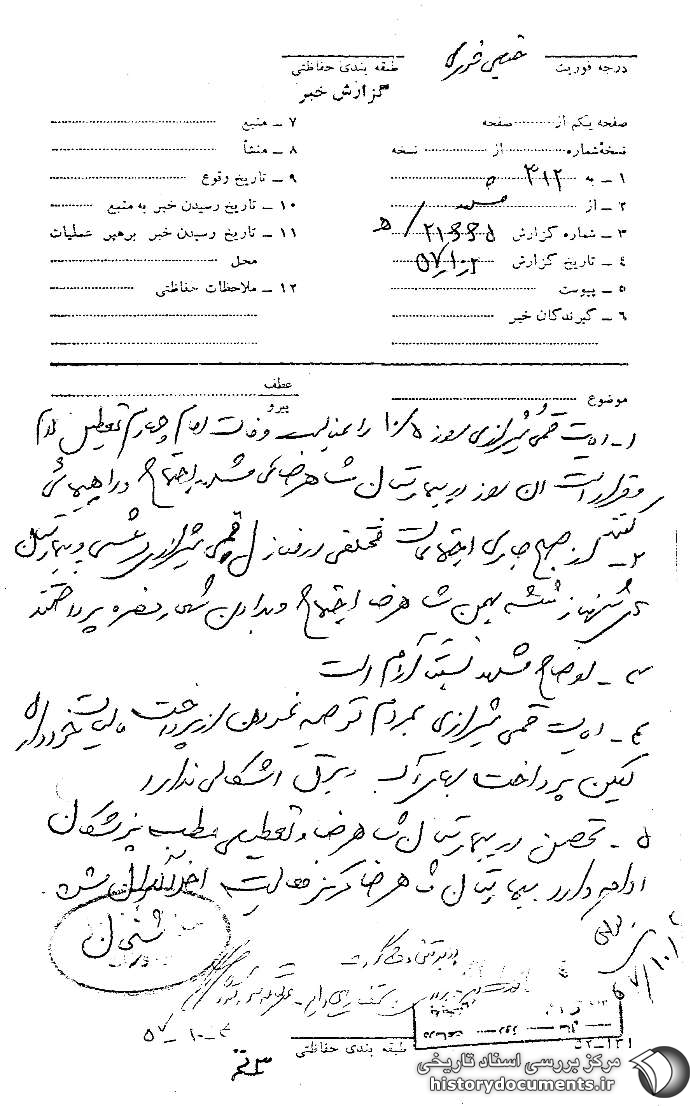 خیلی فوری
درجه فوریت
طبقه بندی حفاظتی
گزارش خبر
صفحه یکم از صفحه
نسخه شماره از نسخه
۱ ـ به ۳۱۲
۲ ـ از
۳ ـ شماره گزارش
۴ ـ تاریخ گزارش ۵۷/۱۰/۲
۵ ـ پیوست
۶ ـ گیرندگان خبر
۷ ـ منبع
۸ ـ منشأ
۹ ـ تاریخ وقوع
۱۰ ـ تاریخ رسیدن خبر به منبع
۱۱ ـ تاریخ رسیدن خبر برهبر عملیات
محل
۱۲ ـ ملاحظات حفاظتی
موضوع
عطف
پیرو
۱ـ آیت قمی شیرازی روز ۱۰/۵ را بمناسبت وفات امام چهارم تعطیل اعلام
و قرار است آن روز در بیمارستان شاهرضای مشهد اجتماع و راهپیمائی
کنند
۲ـ از صبح جاری اجتماعات مختلفی در منازل قمی شیرازی مرعشی و بیمارستان
شاهرضا اجتماع و بدادن شعار و غیره پرداختند
۳ـ اوضاع مشهد نسبتا آرام است
۴ـ آیت قمی شیرازی بمردم توصیه نموده‌اند از پرداخت مالیات خودداری
لیکن پرداخت بهای آب و برق اشکالی ندارد
۵ـ تحصن در بیمارستان شاهرضا و تعطیلی مطب پزشکان
ادامه دارد بیمارستان شاهرضا مرکز فعالیت اخلالگران شده
شیخان
۵۷/۱۰/۲
۵۷-۱۰-۳
طبقه بندی حفاظتی
۱۲۱ـ۵۲
مرکز بررسی اسناد تاریخی
historydocuments.ir